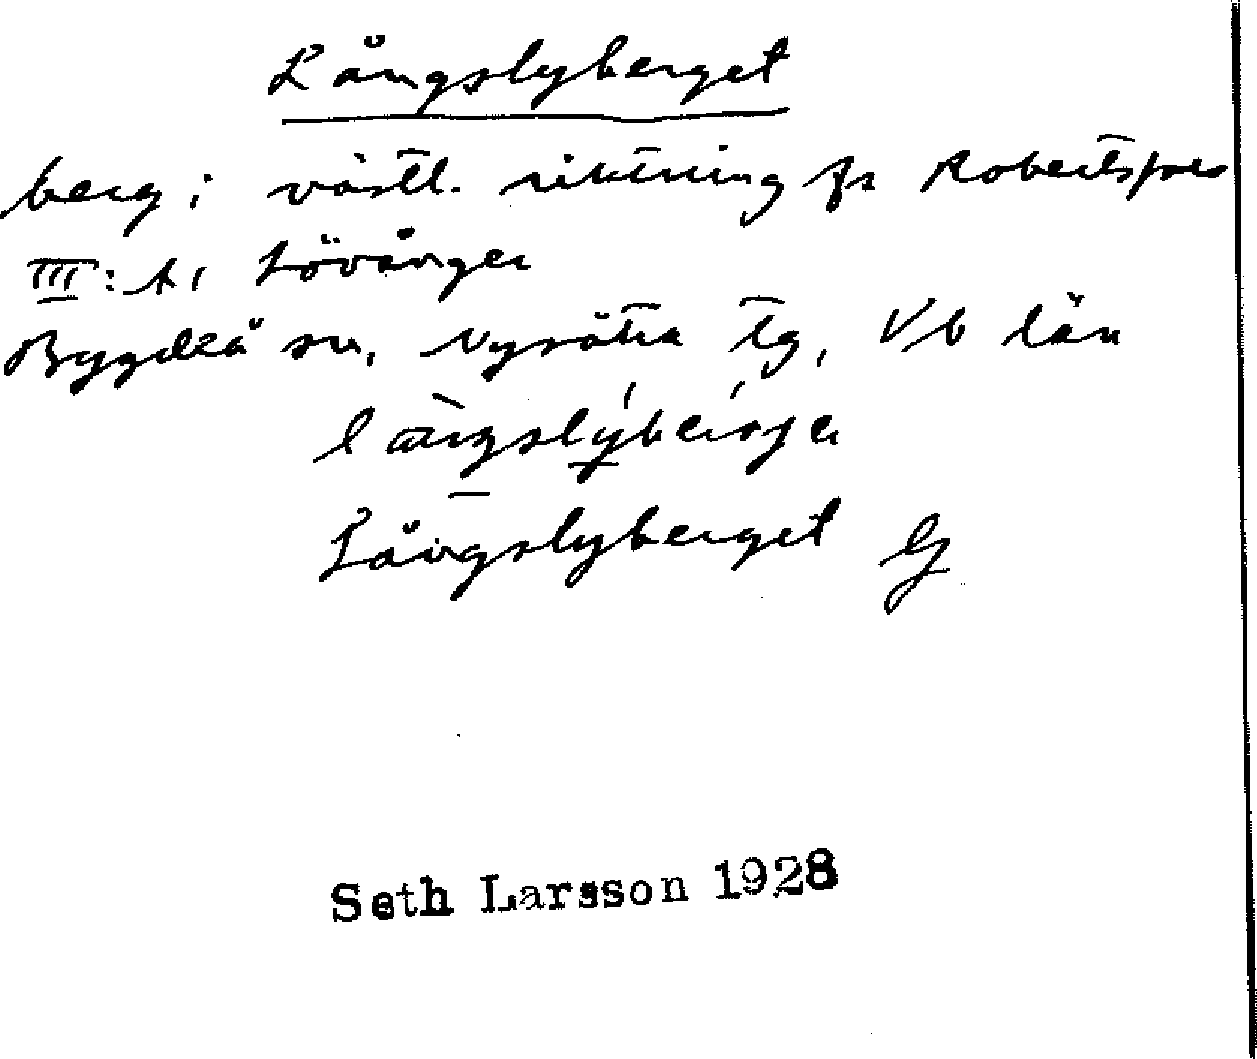 Långslyberget
berg i västl. riktning fr Robertsfors
III: A, Lövånger
Bygdeå sn, Nysätra tg, Vb län
Långslyberget G
Seth Larsson 1928